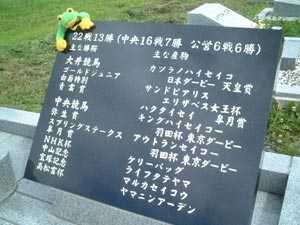 22戦13勝(中央16戦7勝 公営6戦6勝)
主な勝鞍 主な産物
大井競馬 カツラノハイセイコ
ゴールドジュニア 日本ダービー 天皇賞
秋風特別 サンドピアリス
青雲賞 エリザベス女王杯
中央競馬 ハクタイセイ 皐月賞
弥生賞 キングハイセイコー
スプリングステークス 羽田杯 東京ダービー
皐月賞 アウトランセイコー
NHK杯 羽田杯 東京ダービー
中山記念 ケリーバッグ
宝塚記念 ライフタテヤマ
高松宮杯 マルカセイコウ
ヤマニンアーデン